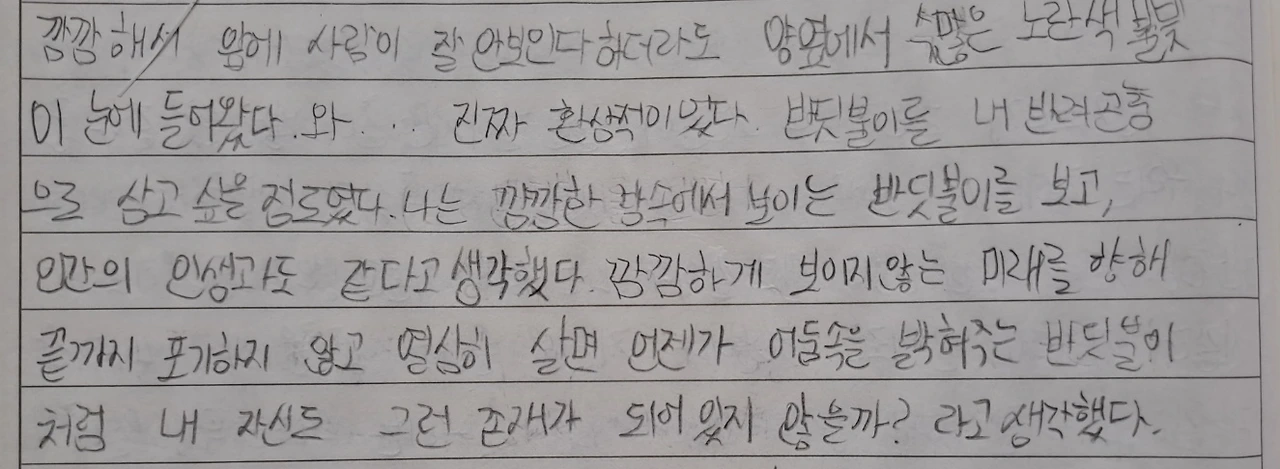 깜깜해서 앞에 사람이 잘 안보인다 하더라도 양옆에서 수많은 노란색 불빛
이 눈에 들어왔다. 와... 진짜 환상적이었다. 반딧불이를 내 반려곤충
으로 삼고 싶을 정도였다. 나는 깜깜한 밤속에서 보이는 반딧불이를 보고,
인간의 인생과도 같다고 생각했다. 깜깜하게 보이지않는 미래를 향해
끝까지 포기하지 않고 열심히 살면 언젠가 어둠속을 밝혀주는 반딧불이
처럼 내 자신도 그런 존재가 되어 있지 않을까? 라고 생각했다.